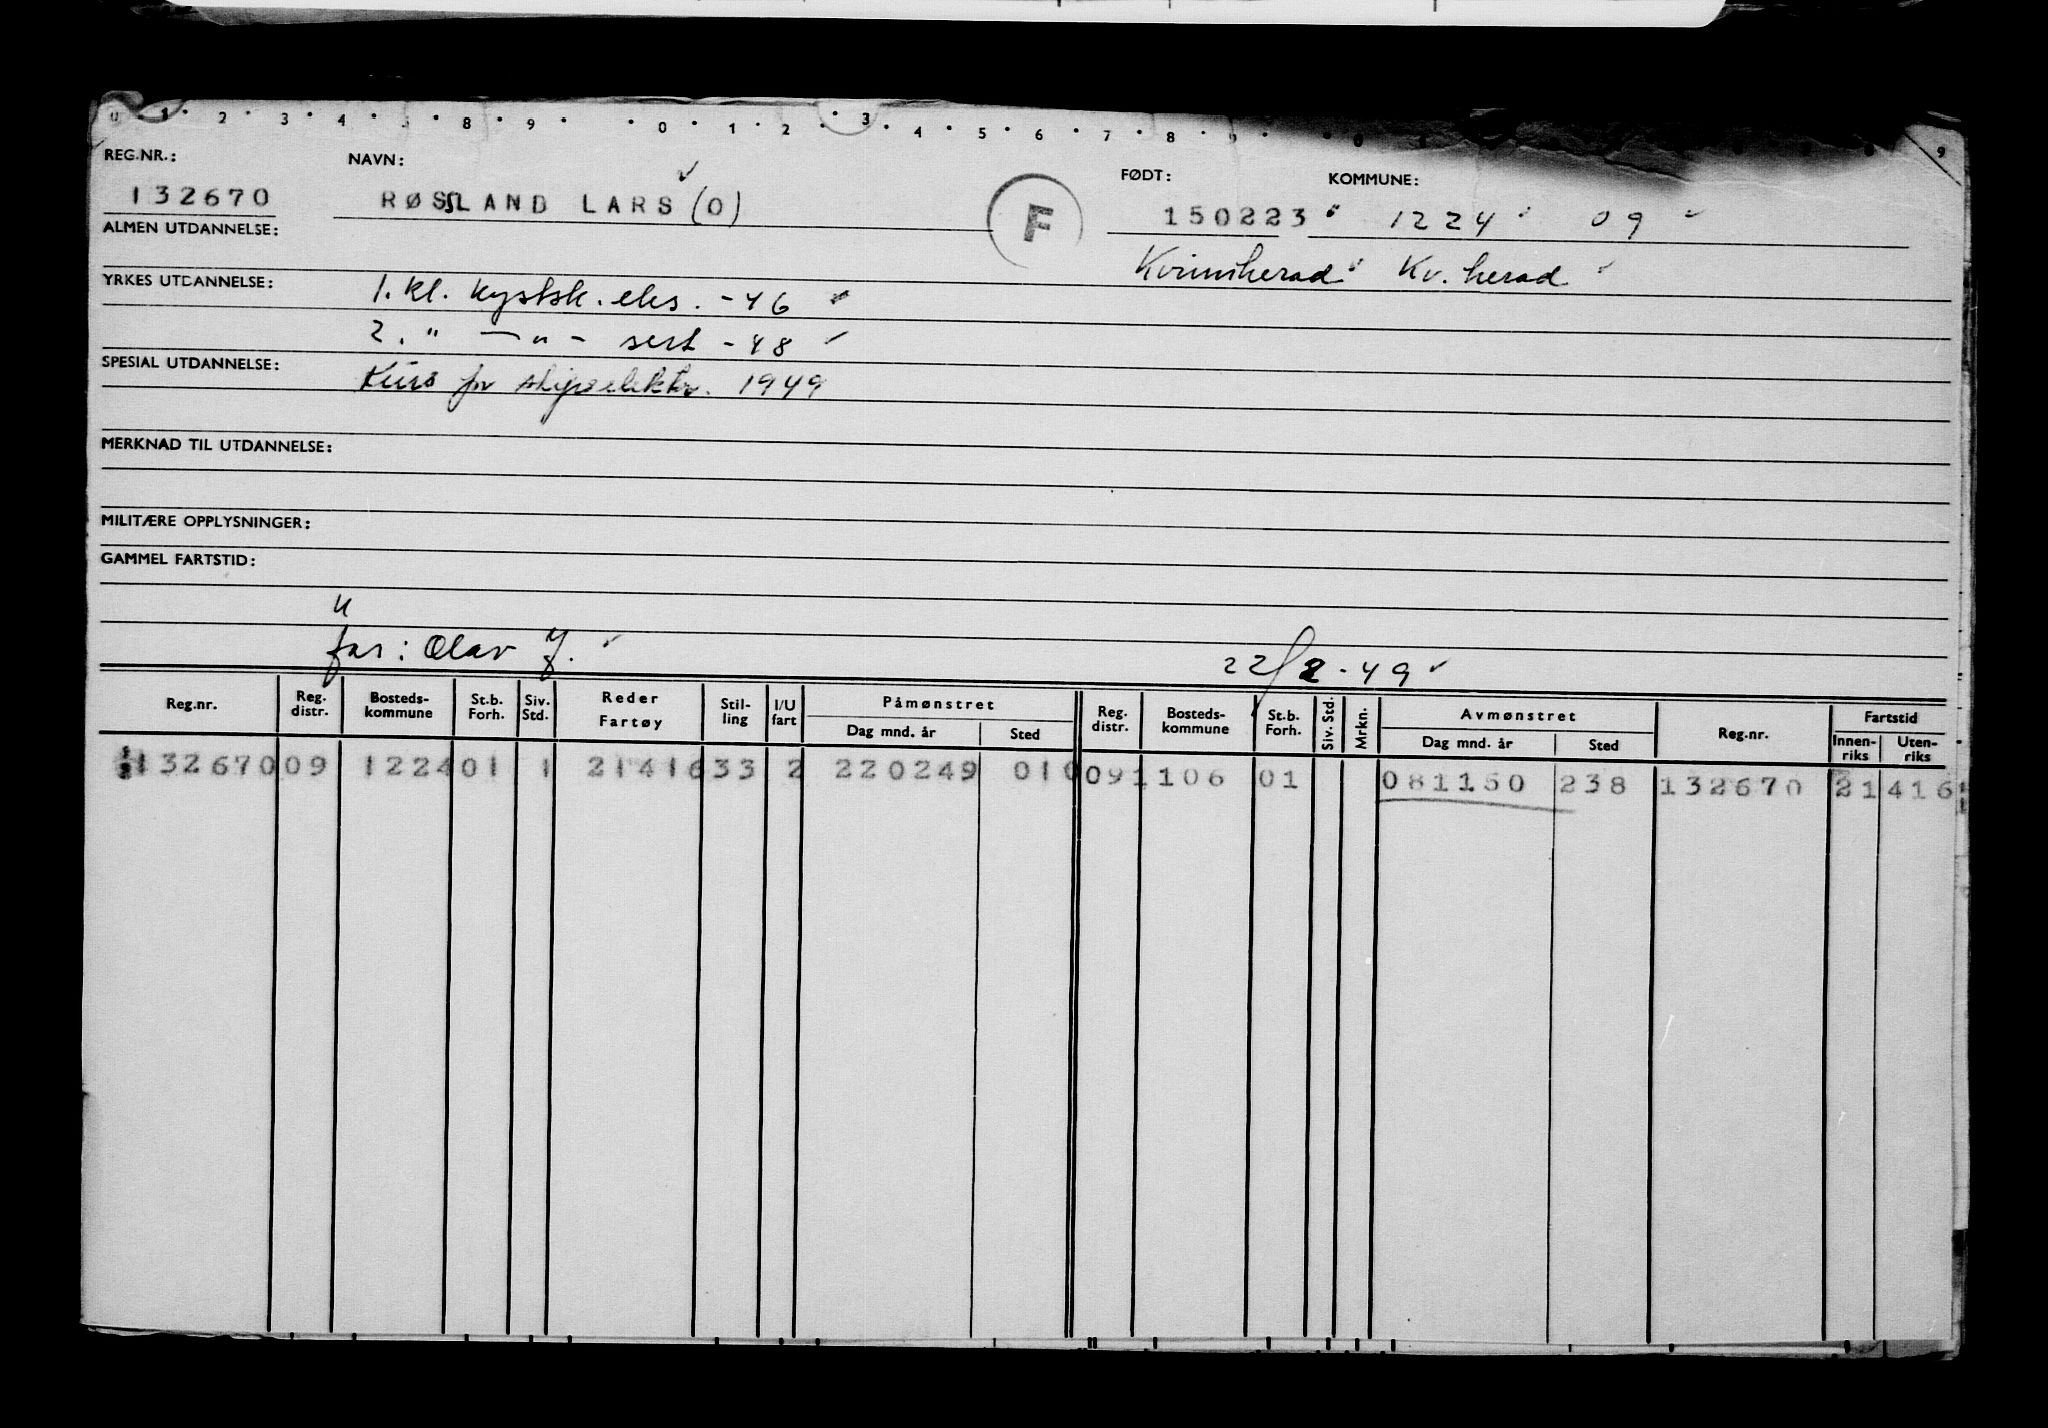 0 1 2 3 4 8 9 0 1 2 3 4 5 6 7 8 9 0 9
REG.NR.: NAVN: FØDT: KOMMUNE:
132670 RØSSLAND LARS (O) F 150223 1224 09
ALMEN UTDANNELSE:
Kvinnherad Kv. herad
YRKES UTDANNELSE: 1. kl. kystsk. eks. - 46
2. " — " - sert - 48
SPESIAL UTDANNELSE: Kurs for skipselektr. 1949
MERKNAD TIL UTDANNELSE:
MILITÆRE OPPLYSNINGER:
GAMMEL FARTSTID:
u
far: Olav J. 22/2-49
Reg.nr. Reg. distr. Bosteds-kommune St.b. Forh. Siv. Std. Reder Fartøy Stil-ling I/U fart Påmønstret Dag mnd. år Sted Reg. distr. Bosteds-kommune St.b. Forh. Siv. Std. Mrkn. Avmønstret Dag mnd. år Sted Reg.nr. Fartstid Innen-riks Uten-riks
132670 09 1224 01 1 21416 33 2 220249 010 09 1106 01 081150 238 132670 21416